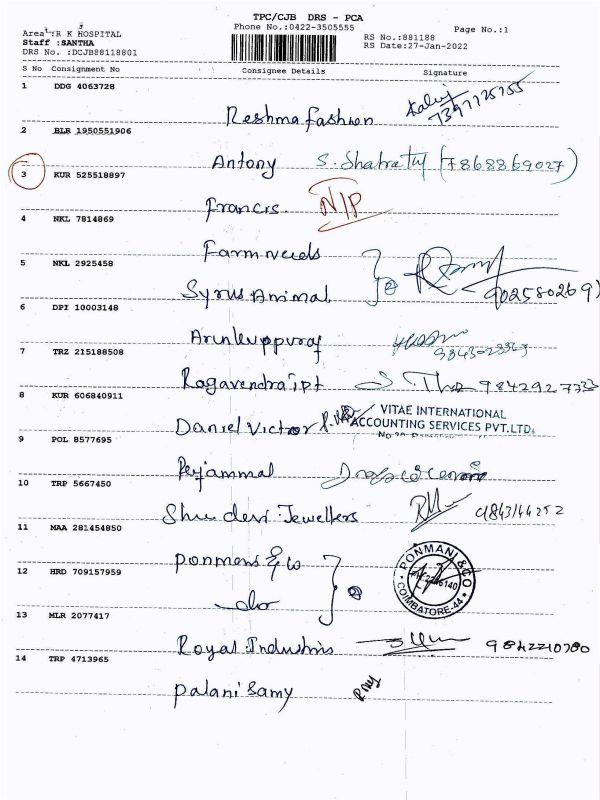 TPC/CJB DRS - PCA
Phone No.:0422-3505555
Page No.:1
Area :R K HOSPITAL
Staff :SANTHA
DRS No. :DCJB88118801
RS No.:881188
RS Date:27-Jan-2022
S No Consignment No Consignee Details Signature
1 DDG 4063728
Reshma fashion 7397725755
2 BLR 1950551906
Antony (7868869027)
3 KUR 525518897
Francis. N/P
4 NKL 7814869
Farmneeds
5 NKL 2925458
Syrus Animal 2
6 DPI 10003148
7 TRZ 215188508
Ragavendra ipt
8 KUR 606840911
Daniel Victor VITAE INTERNATIONAL
ACCOUNTING SERVICES PVT.LTD.
9 POL 8577695
10 TRP 5667450
Shree devi Jewellers 9843144252
11 MAA 281454850
Ponmani & co
12 HRD 709157959
do 2 PONMANI & CO
COIMBATORE-44
13 MLR 2077417
Royal Industries 9842210780
14 TRP 4713965
Palani Samy